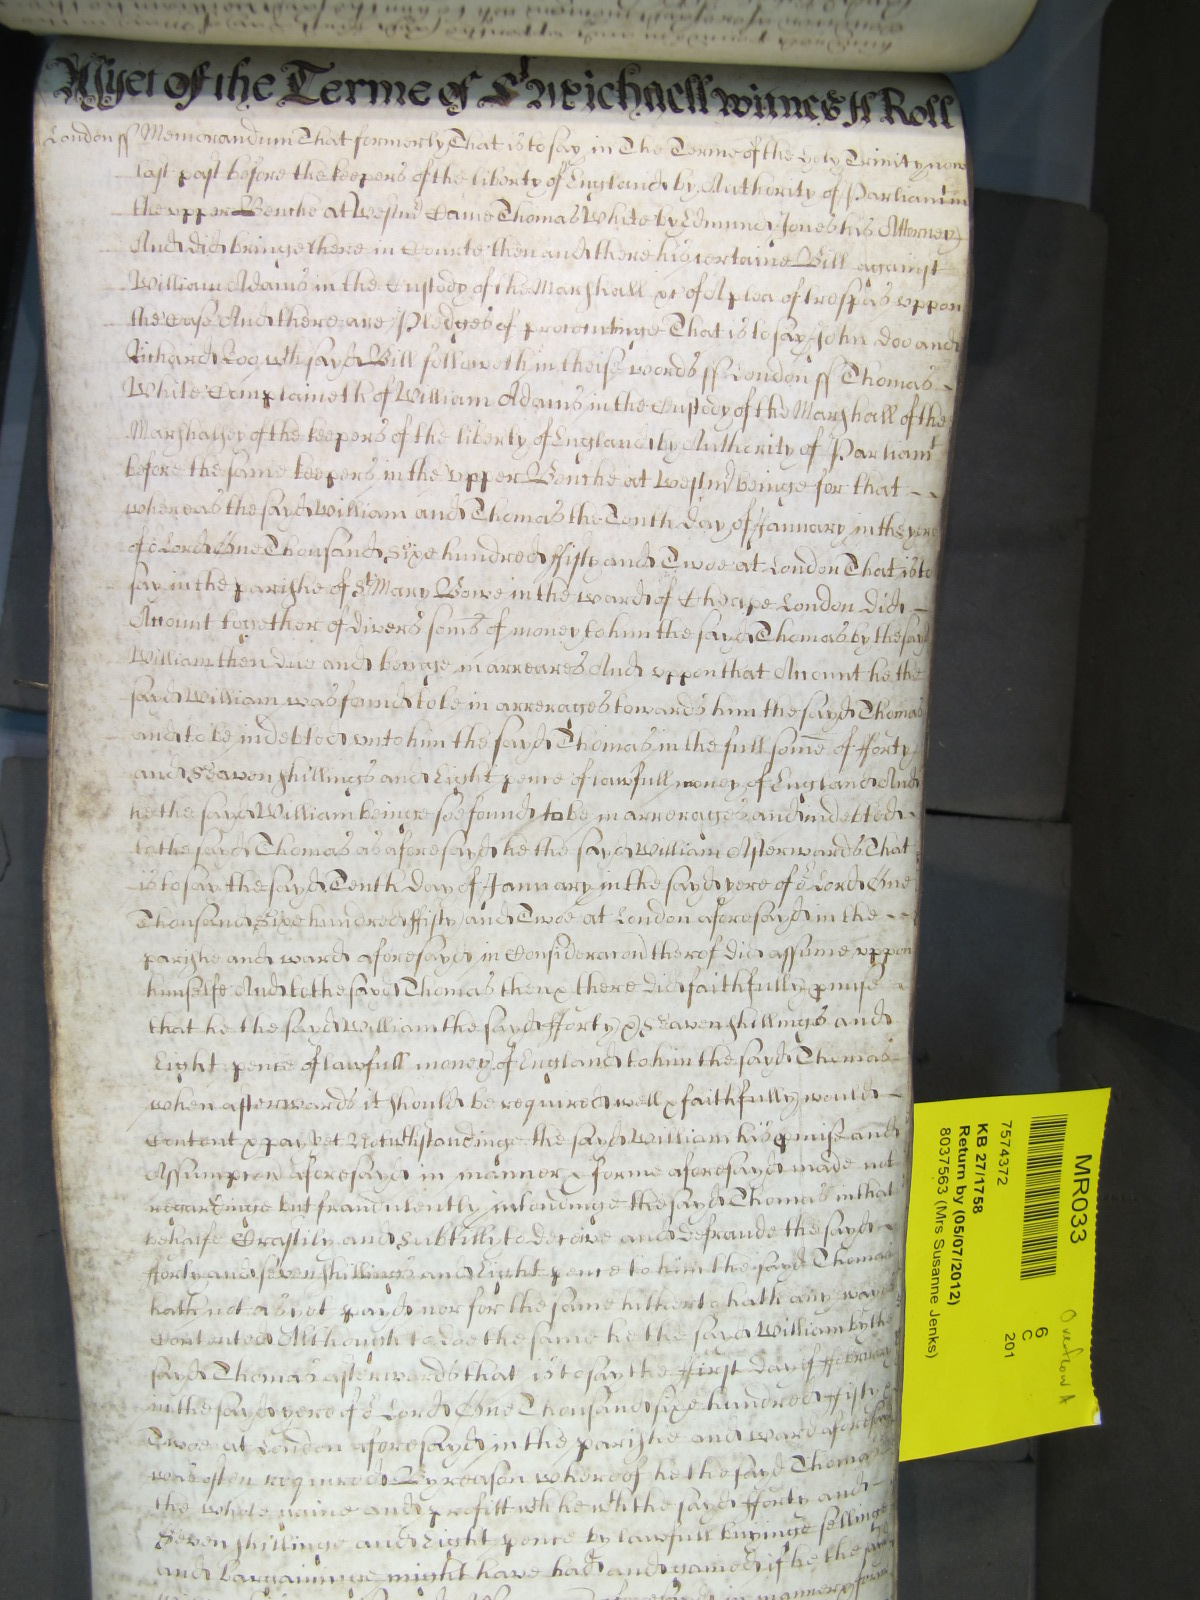 Yet of the Terme of St Michaell witnes H Roll
London ss Memorandum That formerly That is to say in The Terme of the Holy Trinity now
last past before the keepers of the liberty of England by Authority of Parliamt in
the vpper Benche at Westmr Came Thomas White by Edmund Jones his Attorney
And did bringe there in Courte then and there his certaine Bill against
William Adams in the Custody of the Marshall &c of A plea of trespas vppon
the Case And there are Pledges of prosecutinge That is to say John Doo and
Richard Roo wch sayd Bill followeth in theise words ss London ss Thomas
White Complaineth of William Adams in the Custody of the Marshall of the
Marshalsey of the keepers of the liberty of England by Authority of Parliamt
before the same keepers in the vpper Benche at Westmr beinge for that
whereas the sayd William and Thomas the Tenth day of January in the yere
of or Lord One Thousand Sixe hundred ffifty and Twoe at London That is to
say in the parishe of St Mary Bowe in the ward of Cheape London did
Account together of divers somes of money to him the sayd Thomas by the sayd
William then due and beinge in arreares And vppon that Account he the
sayd William was found to be in arrerages towards him the sayd Thomas
and to be indebted vnto him the sayd Thomas in the full some of fforty
and Seaven shillings and Eight pence of lawfull money of England And
he the sayd William beinge soe found to be in arrerages and indebted
to the sayd Thomas as aforesayd he the sayd William Afterwards That
is to say the sayd Tenth day of January in the sayd yere of or Lord One
Thousand Sixe hundred ffifty and Twoe at London aforesayd in the
parishe and ward aforesayd in Consideracon thereof did assume vppon
himselfe And to the sayd Thomas then & there did faithfully pmise
that he the sayd William the sayd fforty & Seaven shillings and
Eight pence of lawfull money of England to him the sayd Thomas
when afterwards it should be required well & faithfully would
Content & pay yet Notwthstandinge the sayd William his pmise and
Assumpcon aforesayd in manner & forme aforesayd made not
regardinge but fraudulently intendinge the sayd Thomas in that
behalfe Craftily and Subtilly to deceive and defraude the sayd
fforty and seven shillings and Eight pence to him the sayd Thomas
hath not as yet payd nor for the same hitherto hath any wayes
Contented Although to doe the same he the sayd William by the
sayd Thomas afterwards that is to say the ffirst day of ffebruary
in the sayd yere of or Lord One Thousand sixe hundred ffifty &
Twoe at London aforesayd in the parishe and ward aforesayd
was often required By reason whereof he the sayd Thomas
the whole gaine and profitt wch he wth the sayd fforty and
Seven shillings and Eight pence by lawfull buyinge sellinge
and bargaininge might have had and gained if he the sayd
aforesayd in manner & forme
MR033
7574372
KB 27/1758
Return by (05/07/2012)
8037563 (Mrs Susanne Jenks)
6
C
201